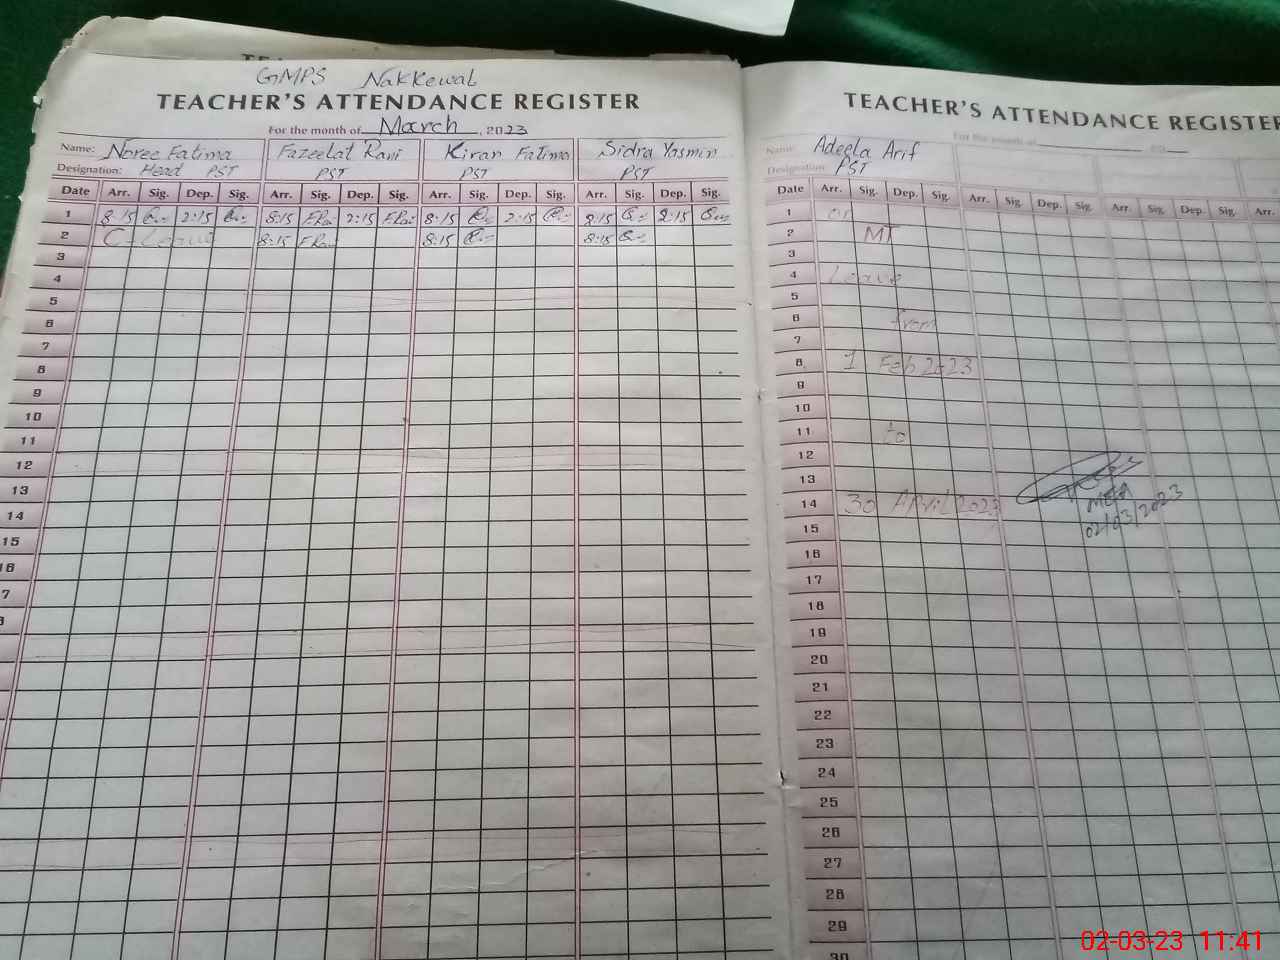 GMPS Nakkewal
TEACHER'S ATTENDANCE REGISTER
For the month of March, 2023
Name: Noree Fatima Fazeelat Rani Kiran Fatima Sidra Yasmin
Designation: Head PST PST PST PST
Date Arr. Sig. Dep. Sig. Arr. Sig. Dep. Sig. Arr. Sig. Dep. Sig. Arr. Sig. Dep. Sig.
1 8:15 2:15 8:15 F.Ra 2:15 F.Ra 8:15 2:15 8:15 2:15
2 C-Leave 8:15 F.Ra 8:15 8:15
3
4
5
6
7
8
9
10
11
12
13
14
15
16
7
TEACHER'S ATTENDANCE REGISTER
For the month of
Name: Adeela Arif
Designation: PST
Date Arr. Sig. Dep. Sig. Arr. Sig. Dep. Sig. Arr. Sig. Dep. Sig. Arr.
1 on
2 MT
3
4 Leave
5
6 from
7
8 1 Feb 2023
9
10
11 to
12
13
14 30 April 2023
MEA
02/03/2023
15
16
17
18
19
20
21
22
23
24
25
26
27
28
29
30
02-03-23 11:41